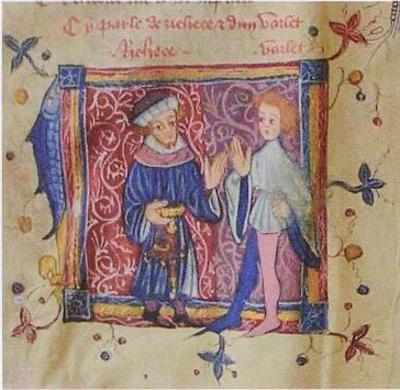 Cy parle de richece & dun varlet
Richece varlet